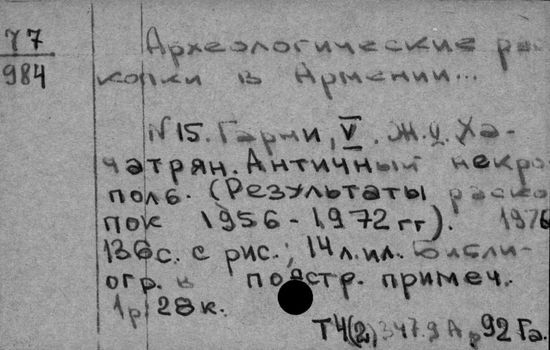 77
984
Археологические рас
копки в Армении...
N15. Гарни, V. Ж.Д. Ха-
чатрян. Античный некро
поль. (Результаты раско
пок 1956-1972 гг). 1976
136с. с рис.; 14 л.ил. Библи-
огр. в подстр. примеч.
1р 28к.
Т4(2) 347.9 Ар 92 Га.